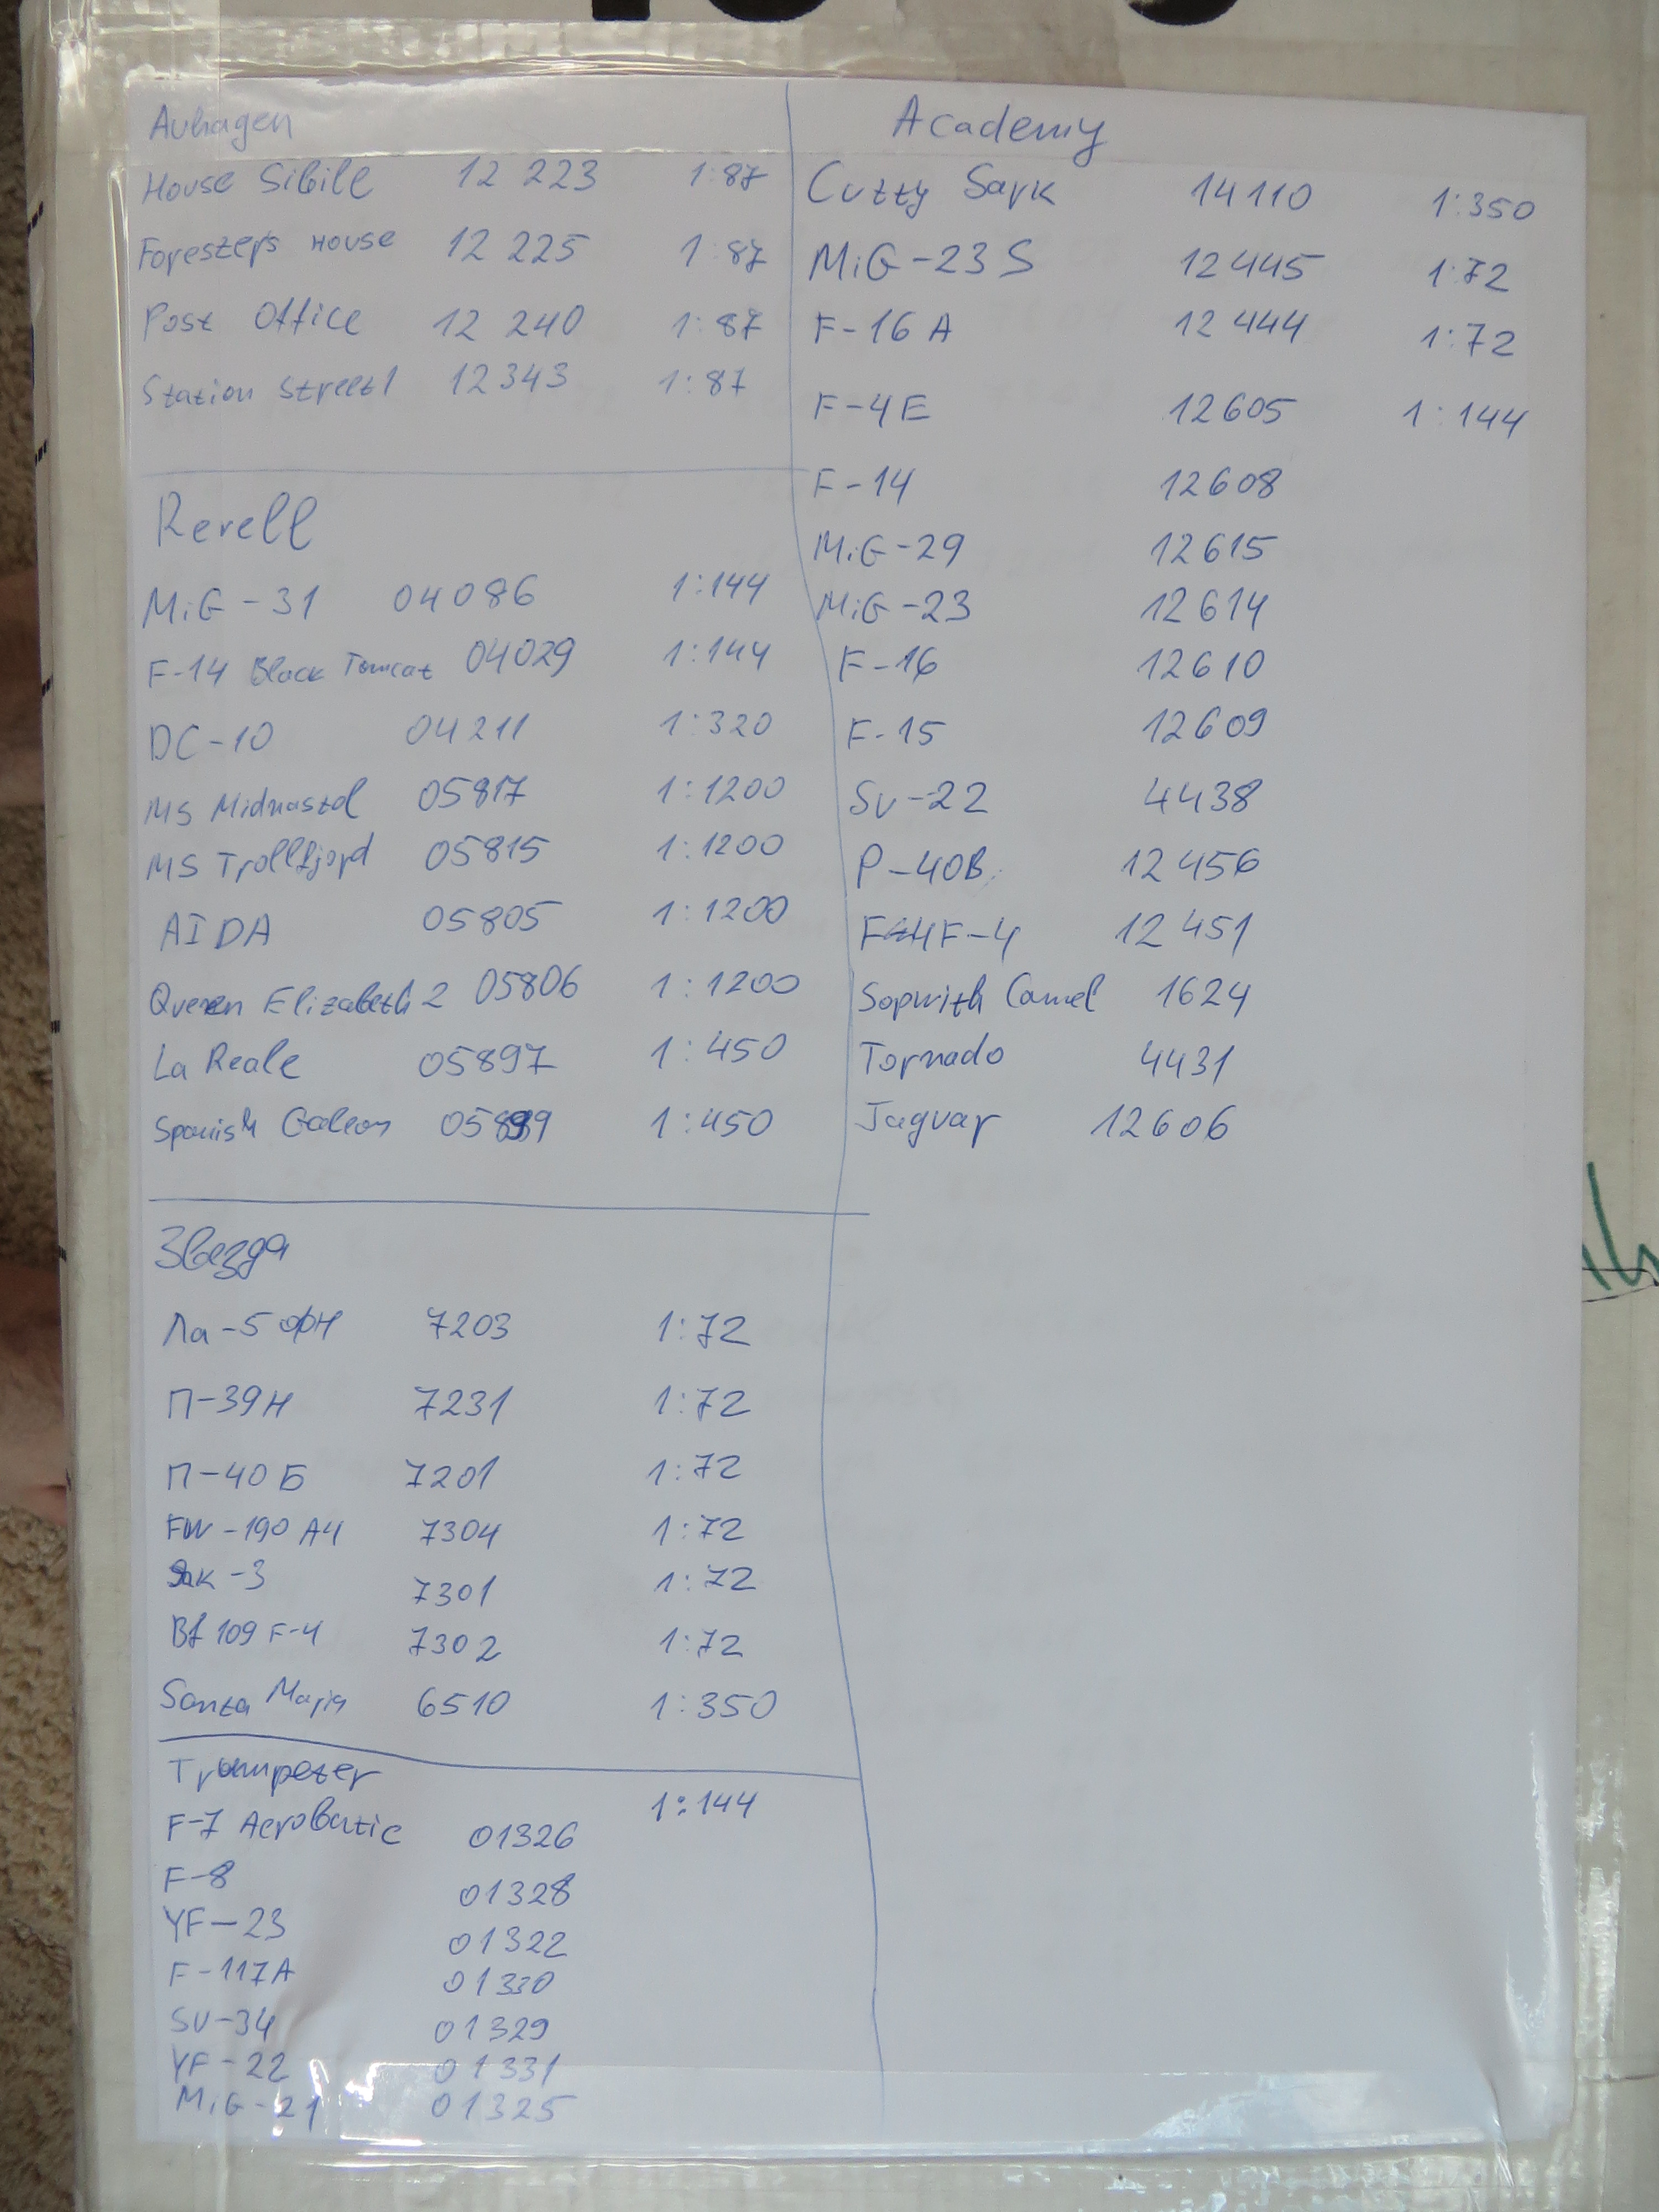 Auhagen
House Sibille 12 223 1:87
Forester's House 12 225 1:87
Post Office 12 240 1:87
Station street 1 12343 1:87
Revell
MiG-31 04086 1:144
F-14 Black Tomcat 04029 1:144
DC-10 04211 1:320
MS Midnatsol 05817 1:1200
MS Trollfjord 05815 1:1200
AIDA 05805 1:1200
Queen Elizabeth 2 05806 1:1200
La Reale 05897 1:450
Spanish Galeon 05899 1:450
Звезда
Ла-5 ФН 7203 1:72
П-39Н 7231 1:72
П-40 Б 7201 1:72
FW-190 A4 7304 1:72
Як-3 7301 1:72
Bf 109 F-4 7302 1:72
Santa Maria 6510 1:350
Trumpeter
1:144
F-7 Aerobatic 01326
F-8 01328
YF-23 01322
F-117A 01330
SU-34 01329
YF-22 01331
MiG-21 01325
Academy
Cutty Sark 14110 1:350
MiG-23 S 12445 1:72
F-16 A 12444 1:72
F-4E 12605 1:144
F-14 12608
MiG-29 12615
MiG-23 12614
F-16 12610
F-15 12609
Su-22 4438
P-40B 12456
F4F-4 12451
Sopwith Camel 1624
Tornado 4431
Jaguar 12606